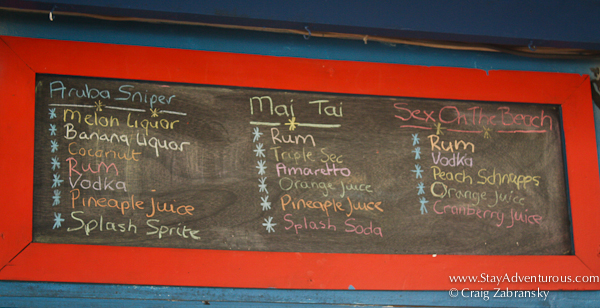 Aruba Sniper
Melon Liquor
Banana Liquor
Coconut
Rum
Vodka
Pineapple juice
Splash Sprite
Mai Tai
Rum
Triple Sec
Amaretto
Orange Juice
Pineapple Juice
Splash Soda
Sex On The Beach
Rum
Vodka
Peach Schnapps
Orange Juice
Cranberry Juice
www.StayAdventurous.com
© Craig Zabransky